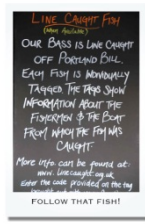 LINE CAUGHT FISH
(When Available)
OUR BASS IS LINE CAUGHT
OFF PORTLAND BILL.
EACH FISH IS INDIVIDUALLY
TAGGED. THE TAGS SHOW
INFORMATION ABOUT THE
FISHERMEN & THE BOAT
FROM WHICH THE FISH WAS
CAUGHT
More info can be found at:
www.linecaught.org.uk
Enter the code provided on the tag
FOLLOW THAT FISH!